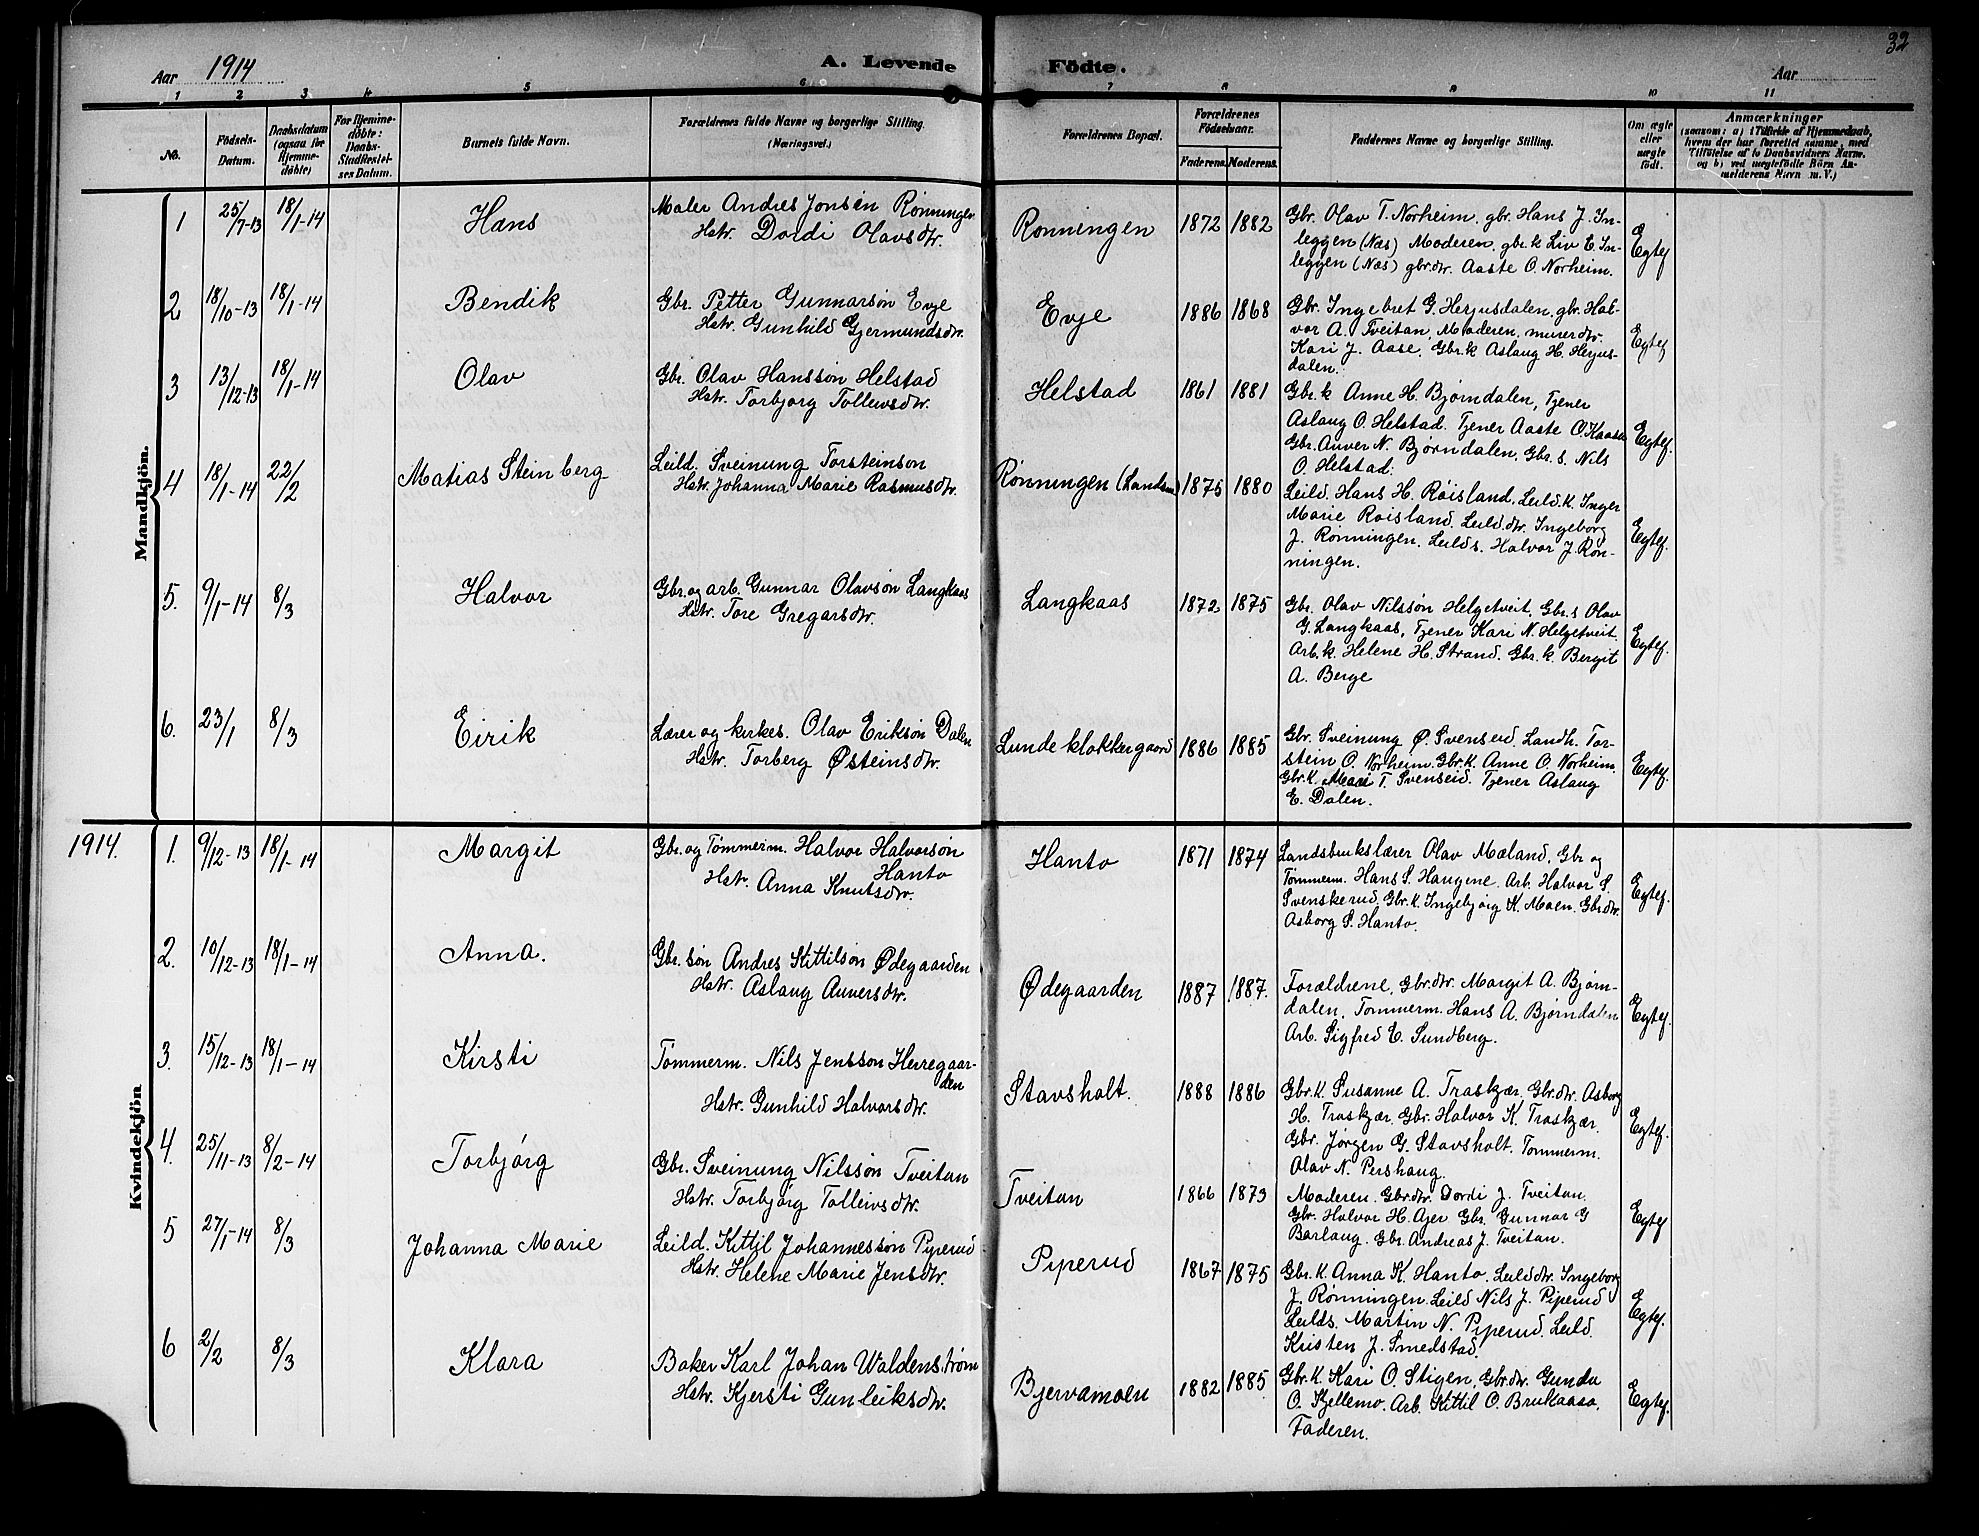 32
Aar 1914 A. Levende Födte. Aar
1 2 3 4 5 6 7 8 9 10 11
No.
Födsels-Datum.
Daabsdatum (ogsaa for Hjemme-döbte)
For Hjemme-döbte: Daabs-Stadfæstel-ses Datum.
Barnets fulde Navn.
Forældrenes fulde Navne og borgerlige Stilling. (Næringsvei.)
Forældrenes Bopæl.
Forældrenes Födselsaar.
Faderens. Moderens.
Faddernes Navne og borgerlige Stilling.
Om ægte eller uægte födt.
Anmærkninger
(saasom: a) i Tilfælde af Hjemmedaab,
hvem der har forrettet samme, med
Tilföielse af to Daabsvidners Navne.
og b) ved uægtefödte Börn An-
melderens Navn m. V.)
Mandkjön.
1 25/7-13 18/1-14 Hans
Maler Andres Jonsøn Rønningen
Hstr. Dordi Olavsdtr.
Rønningen 1872 1882
Gbr. Olav T. Norheim, gbr. Hans J. In-
leggen (Næs) Moderen, gbr.k Liv E. In-
leggen (Næs) gbr.dtr. Aaste O. Norheim.
Egtef
2 18/10-13 18/1-14 Bendik
Gbr. Petter Gunnarsøn Evje
Hstr. Gunhild Gjermundsdtr.
Evje 1886 1868
Gbr. Ingebret G. Herjusdalen, gbr. Hal-
vor A. Tveitan, Moderen, murerdtr.
Kari J. Aase, Gbr.k Aslaug H. Herjus-
dalen.
Egtef
3 13/12-13 18/1-14 Olav
Gbr. Olav Hanssøn Helstad
Hstr. Torbjørg Tollevsdtr.
Helstad 1861 1881
Gbr.k Anne H. Bjørndalen, Tjener
Aslaug O. Helstad. Tjener Aaste O. Kaasa
Gbr. Anver N. Bjørndalen, Gbr. s. Nils
O. Helstad.
Egtef.
4 18/1-14 22/2 Matias Steinberg
Leild. Sveinung Torsteinsøn
Hstr. Johanna Marie Rasmusdtr.
Rønningen (Landsm) 1875 1880
Leild. Hans H. Røisland, Leild.k. Inger
Marie Røisland. Leild.dtr. Ingeborg
J. Rønningen. Leild s. Halvor J. Røn-
ningen.
Egtef.
5. 9/1-14 8/3 Halvor
Gbr. og arb. Gunnar Olavsøn Langkaas
Hstr. Tore Gregarsdtr.
Langkaas 1872 1875
Gbr. Olav Nilssøn Helgetveit. Gbr. s Olav
G. Langkaas, Tjener Kari N. Helgetveit.
Arb. k. Helene H. Strand. Gbr. k. Bergit
A. Berge
Egtef.
6. 23/1 8/3 Eirik
Lærer og kirkes. Olav Eriksøn Dalen
Hstr. Torberg Østeinsdtr.
Lunde klokkergaard 1886 1885
Gbr. Sveinung Ø. Svenseid. Landh. Tor-
stein O. Norheim. Gbr.k. Anne O. Norheim.
Gbr.k. Mari T. Svenseid. Tjener Aslaug
E. Dalen.
Egtef.
1914.
Kvindekjön
1. 9/12-13 18/1-14 Margit
Gbr. og Tømmerm. Halvor Halvorsøn
Hanto
Hstr. Anna Knutsdtr.
Hanto 1871 1874
Landsbrukslærer Olav Mæland, Gbr og
Tømmerm. Hans S. Haugene. Arb. Halvor S.
Svenskerud. Gbr.k. Ingebjørg K. Moen. Gbr.dtr.
Asborg S. Hanto.
Egtef.
2. 10/12-13 18/1-14 Anna.
Gbr. søn Andres Kittilsøn Ødegaarden
Hstr. Aslaug Anversdtr.
Ødegaarden 1887 1887.
Forældrene, Gbr.dtr. Margit A. Bjørn-
dalen, Tømmerm. Hans A. Bjørndalen
Arb. Sigfred E. Sundberg.
Egtef.
3. 15/12-13 18/1-14 Kirsti
Tømmerm. Nils Jenssøn Herregaar-
den
Hstr. Gunhild Halvorsdtr.
Stavsholt. 1888 1886
Gbr.k. Susanne A. Traskjær, Gbr.dtr. Asborg
H. Traskjær. Gbr. Halvor K. Traskjær.
Gbr. Jørgen G. Stavsholt. Tømmerm.
Olav N. Pershaug.
Egtef.
4. 25/11-13 8/2-14 Torbjørg
Gbr. Sveinung Nilssøn Tveitan
Hstr. Torbjørg Tollevsdtr.
Tveitan 1866 1873
Moderen. Gbr.dtr. Dordi J. Tveitan.
Gbr. Halvor H. Ajer Gbr. Gunnar G
Barlaug. Gbr. Andreas J. Tveitan.
Egtef
5 27/1-14 8/3 Johanna Marie
Leild. Kittil Johannessøn Piperud
Hstr. Helene Marie Jensdtr.
Piperud 1867 1875
Gbr.k. Anna K. Hanto. Leild.dtr. Ingeborg
J. Rønningen. Leild Nils J. Piperud
Leilds. Martin N. Piperud. Leild.
Kristen J. Smedstad.
Egtef.
6 2/2 8/3 Klara
Baker Karl Johan Waldenstrøm
Hstr. Kjersti Gunleiksdtr.
Bjervamoen 1882 1885
Gbr.k. Kari O. Stigen, Gbr.dtr. Gunda
O. Kjellemo. Arb. Kittil O. Brukaasa.
Faderen.
Egtef.